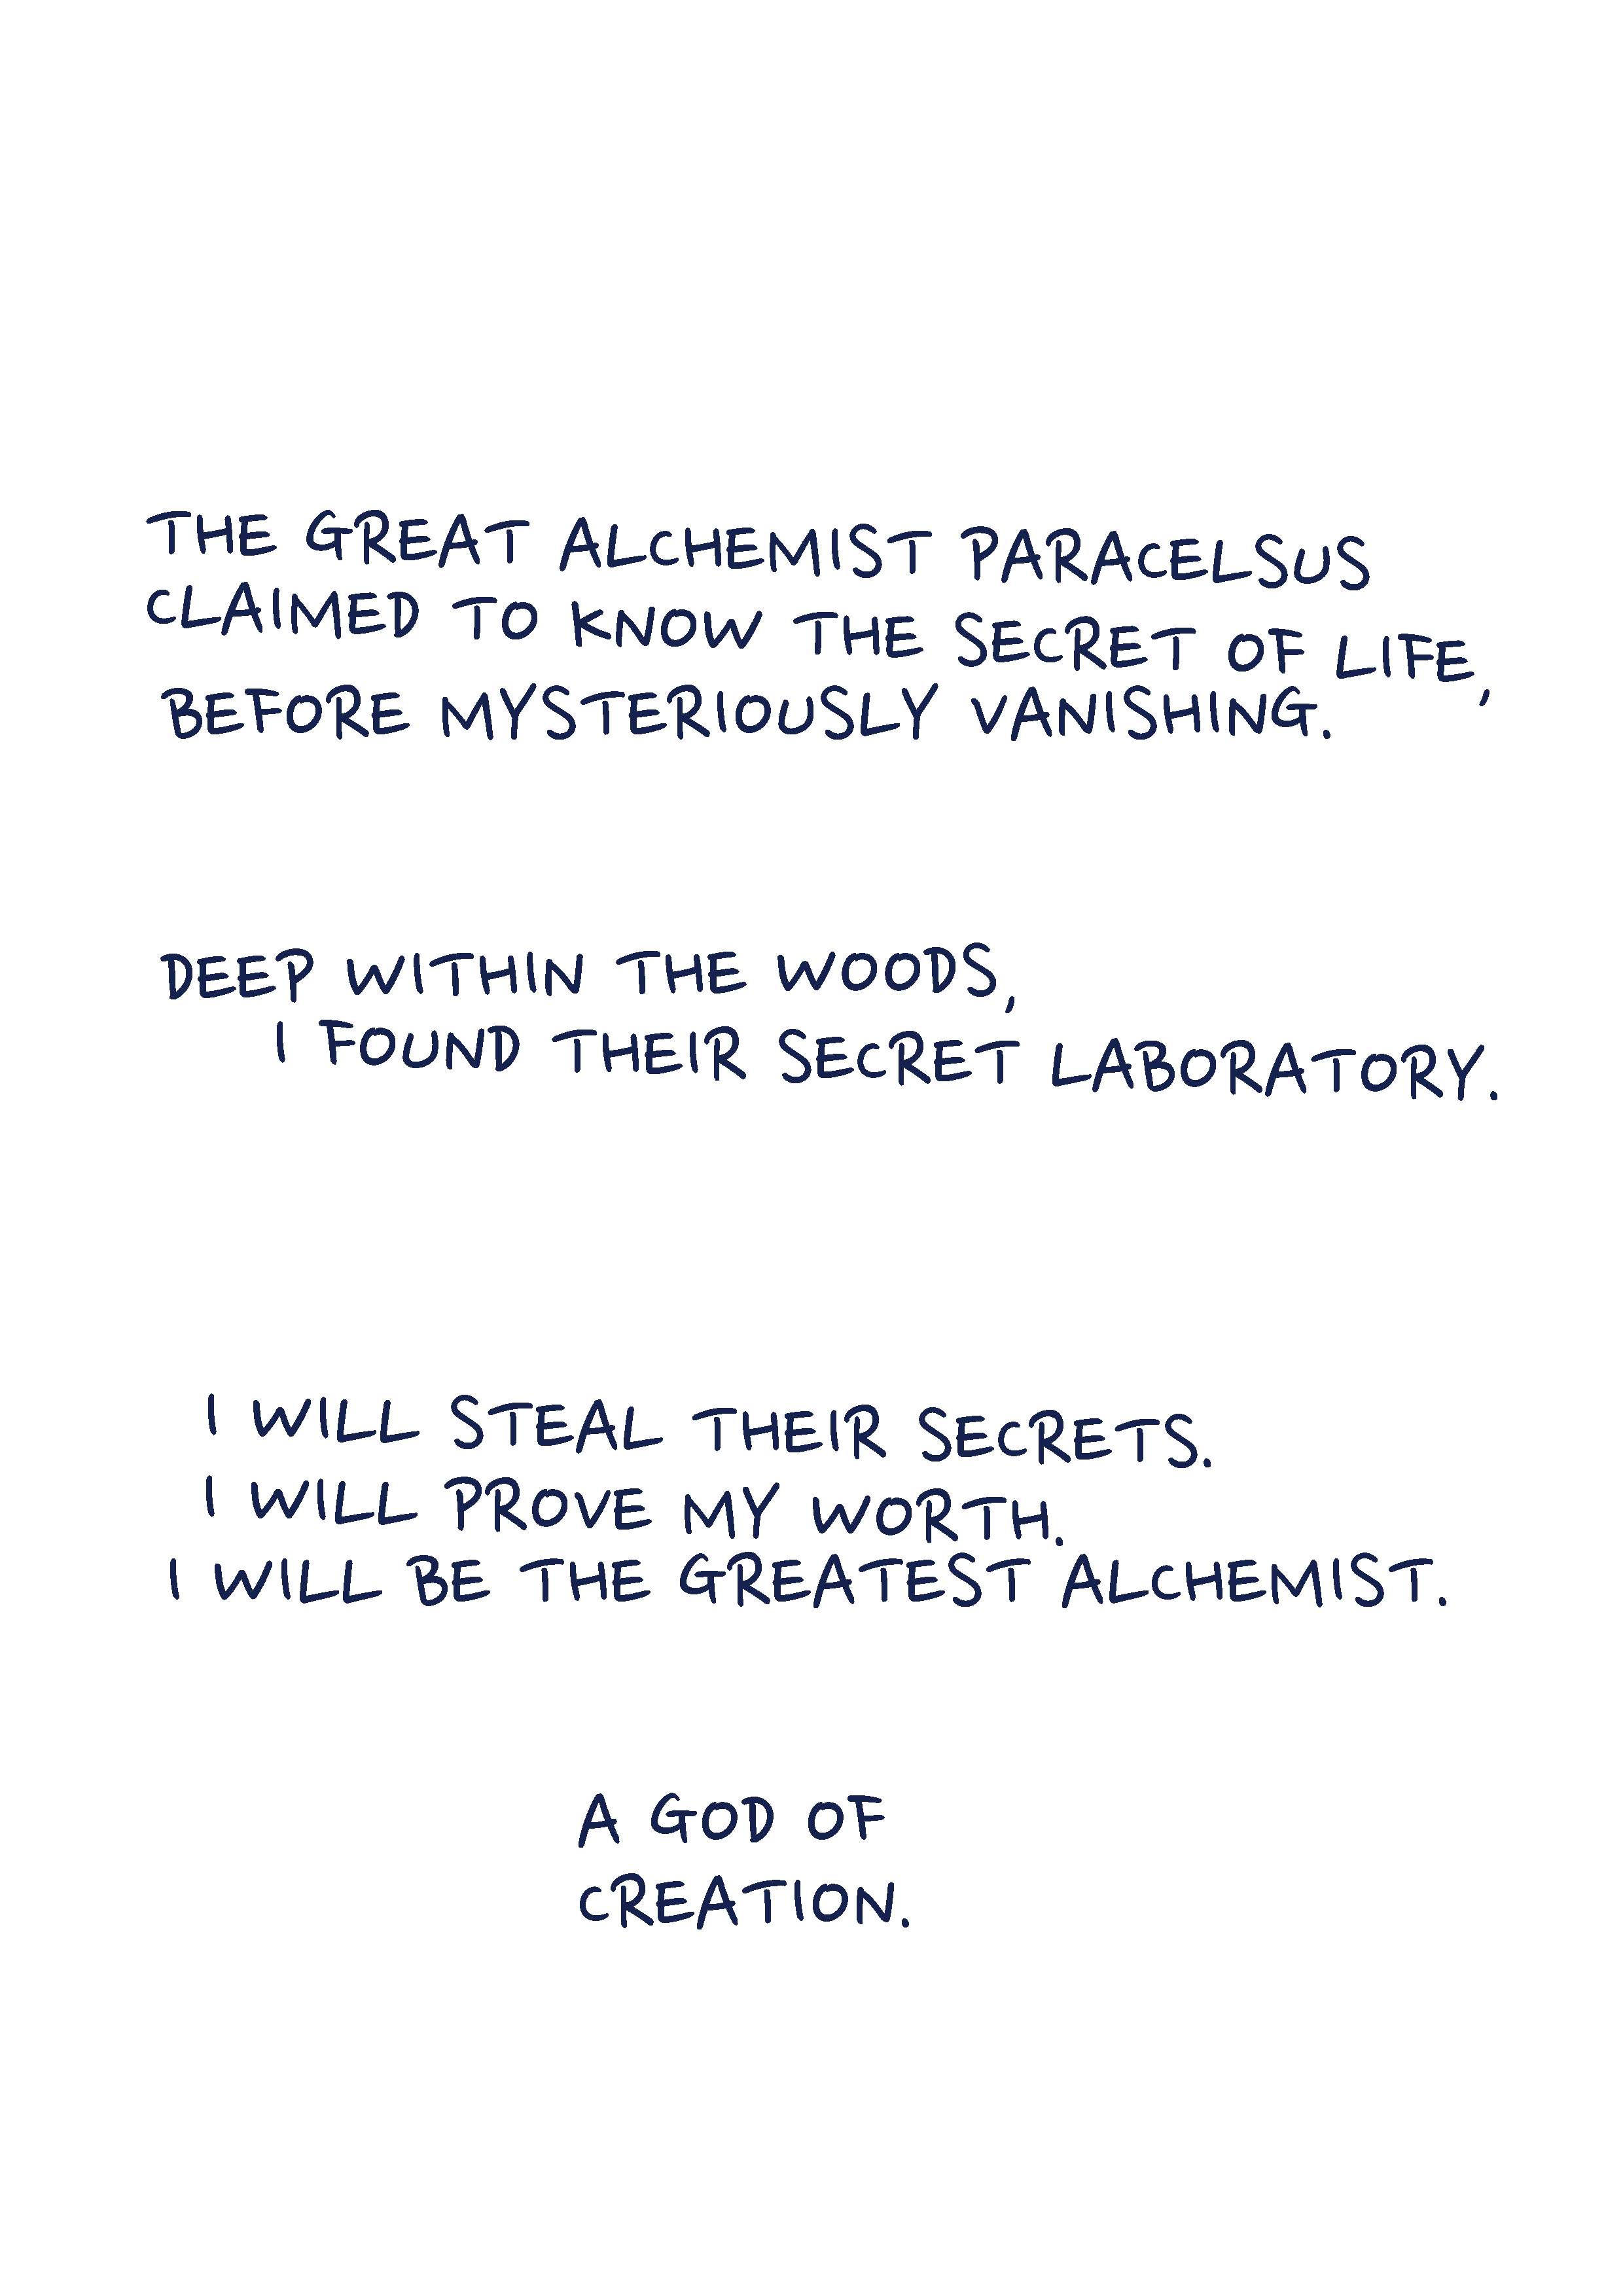 THE GREAT ALCHEMIST PARACELSUS
CLAIMED TO KNOW THE SECRET OF LIFE,
BEFORE MYSTERIOUSLY VANISHING.
DEEP WITHIN THE WOODS,
I FOUND THEIR SECRET LABORATORY.
I WILL STEAL THEIR SECRETS.
I WILL PROVE MY WORTH.
I WILL BE THE GREATEST ALCHEMIST.
A GOD OF
CREATION.